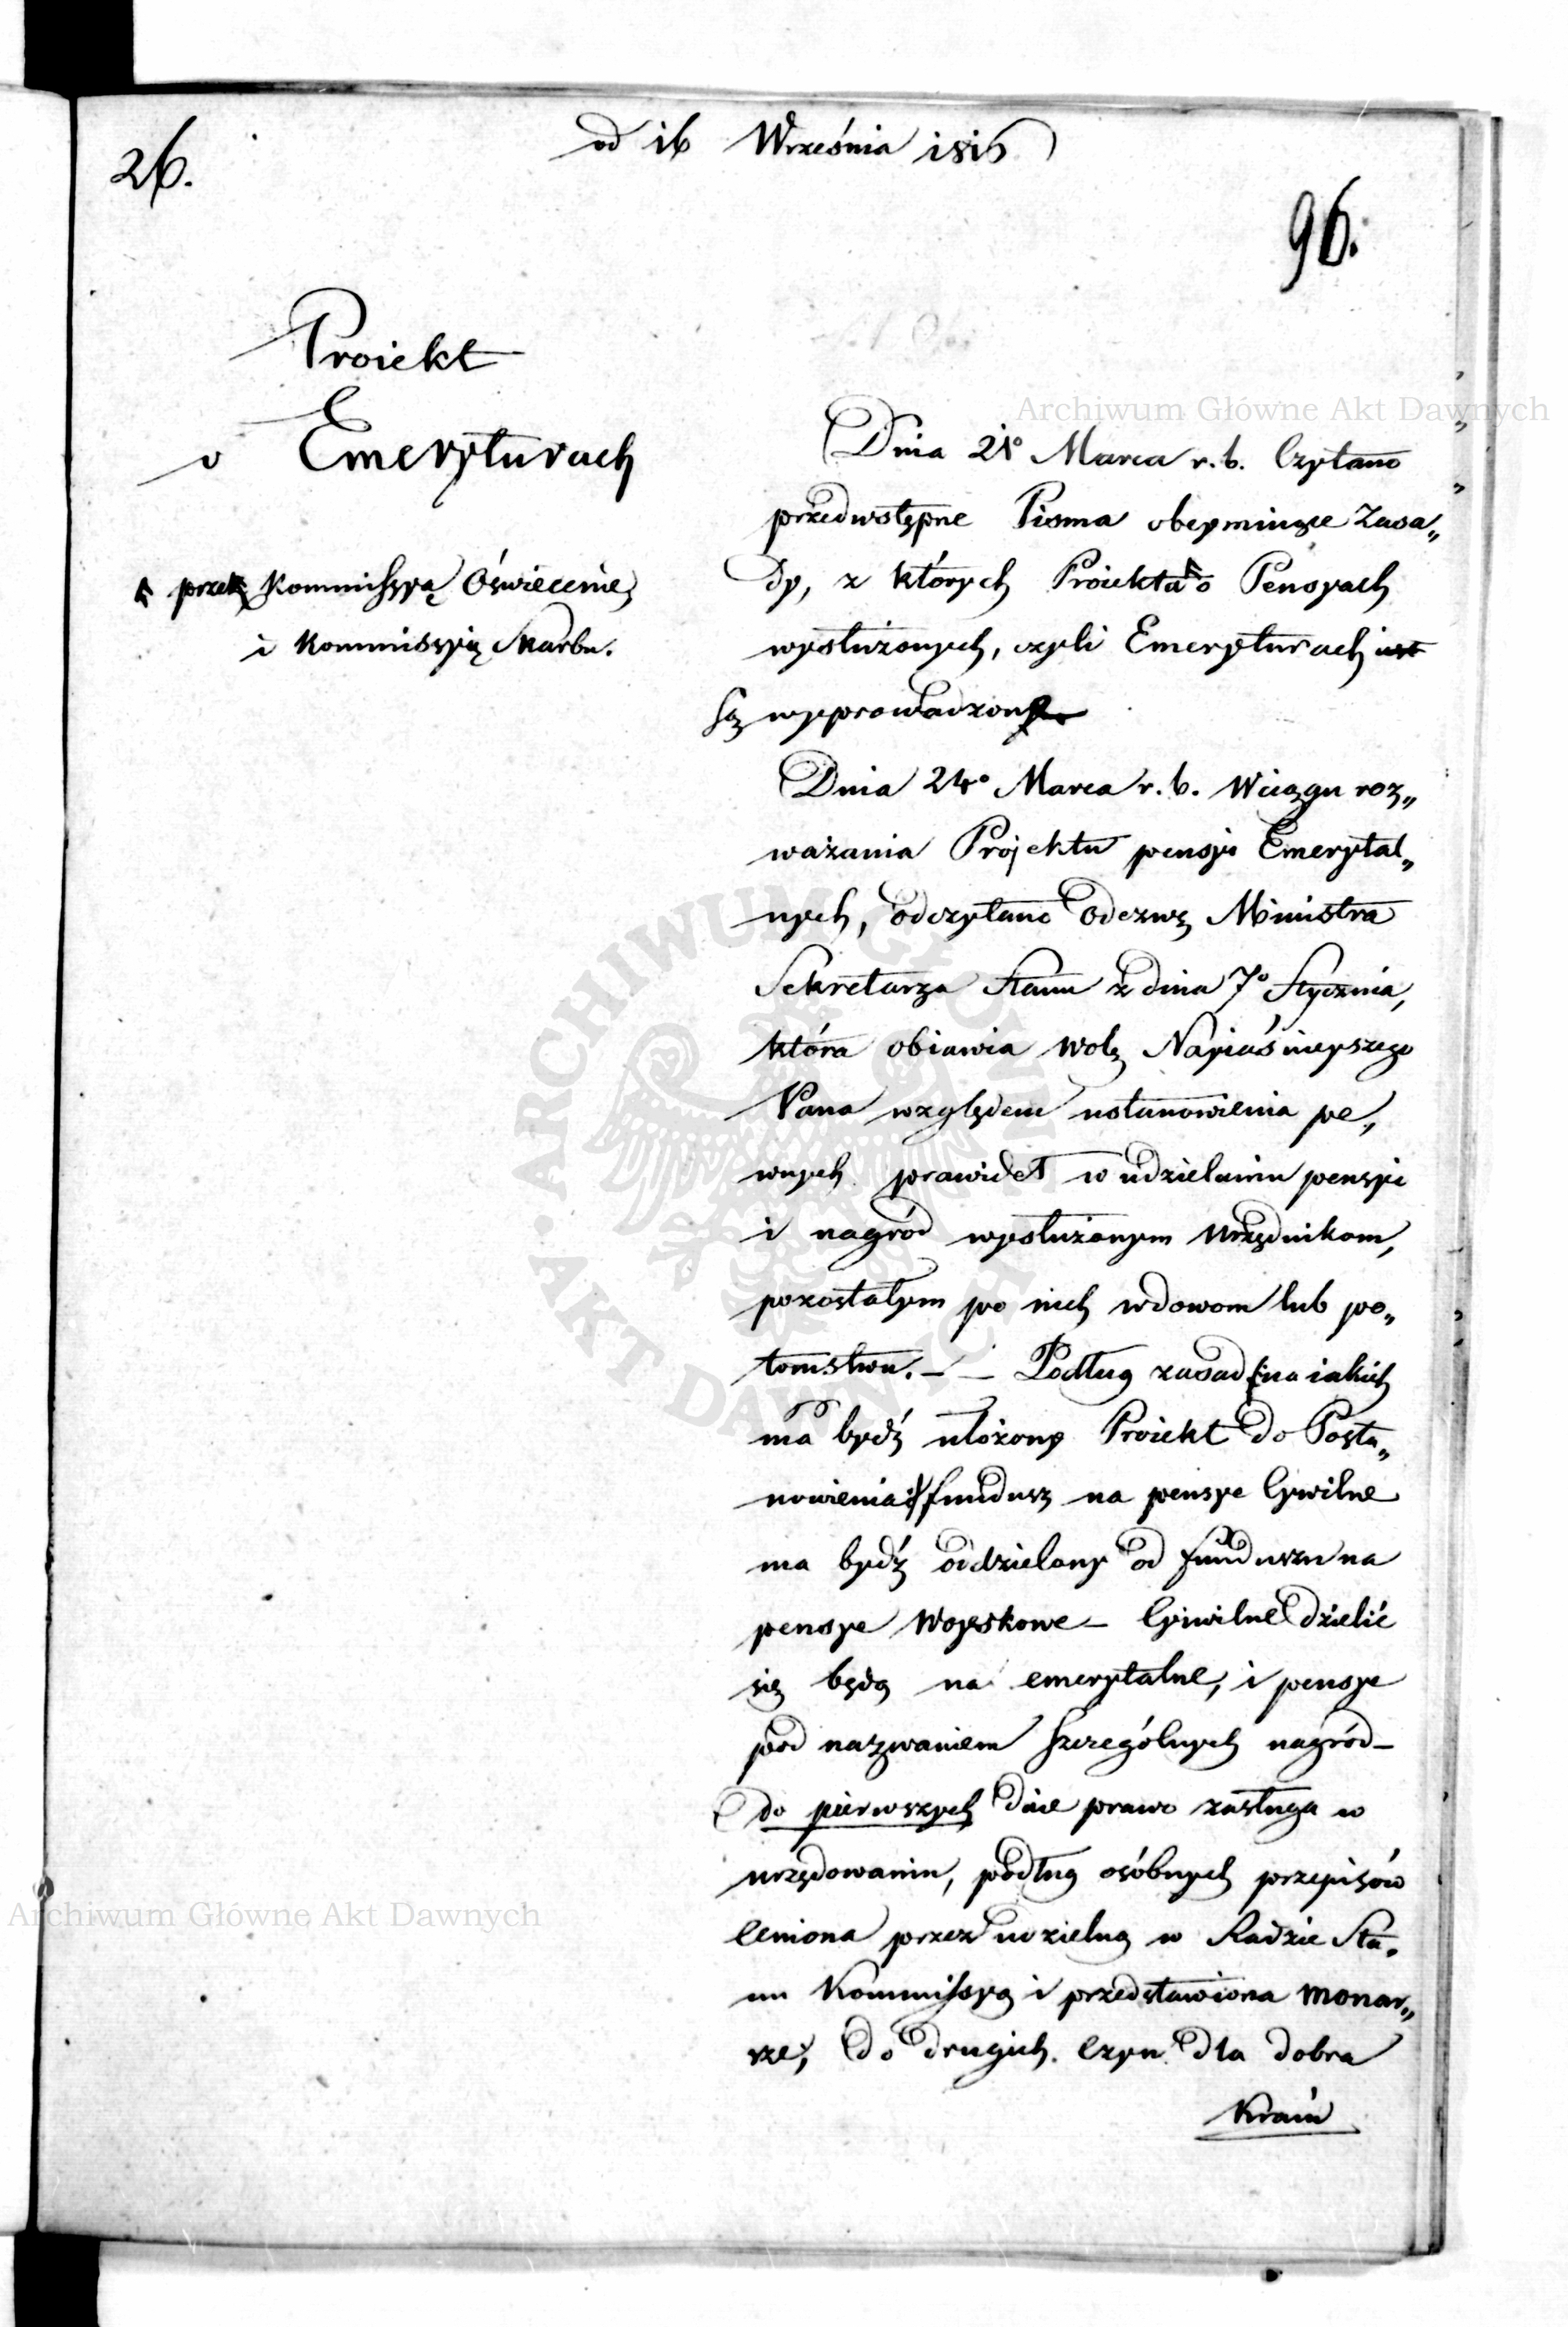 26.
od 16 Września 1815
96.
Proiekt
o Emeryturach
przez Kommissyą Oświecenia
i Kommissyią Skarbu.
Dnia 21° Marca r. b. Czytano
przedwstępne Pisma obeymuiące Zasa„
dy, z których Proiekta o Pensyach
wysłużonych, czyli Emeryturach iest
są wyprowadzone
Dnia 24° Marca r. b. W ciągu roz„
ważania Projektu pensyi Emerytal„
nych, odczytano Odezwę Ministra
Sekretarza Stanu z dnia 7° Stycznia,
która obiawia wolę Nayiaśnieyszego
Pana względem ustanowienia pe„
wnych prawideł w udzielaniu pensyi
i nagród wysłużonym urzędnikom,
pozostałym po nich wdowom lub po„
tomstwu. – – Podług zasad na iakich
ma bydź ułożony Proiekt do Posta„
nowienia fundusz na pensye Cywilne
ma bydź oddzielony od funduszu na
pensye Woyskowe – Cywilne dzielić
się będą na emerytalne, i pensye
pod nazwaniem szczególnych nagród –
do pierwszych daie prawo zasługa w
urzędowaniu, podług osóbnych przepisów
ceniona przez udzielną w Radzie Sta„
nu Kommissyą i przedstawiona Monar„
sze, do drugich. czyn dla dobra
Kraiu
Archiwum Główne Akt Dawnych
Archiwum Główne Akt Dawnych
ARCHIWUM GŁÓWNE
• AKT DAWNYCH •